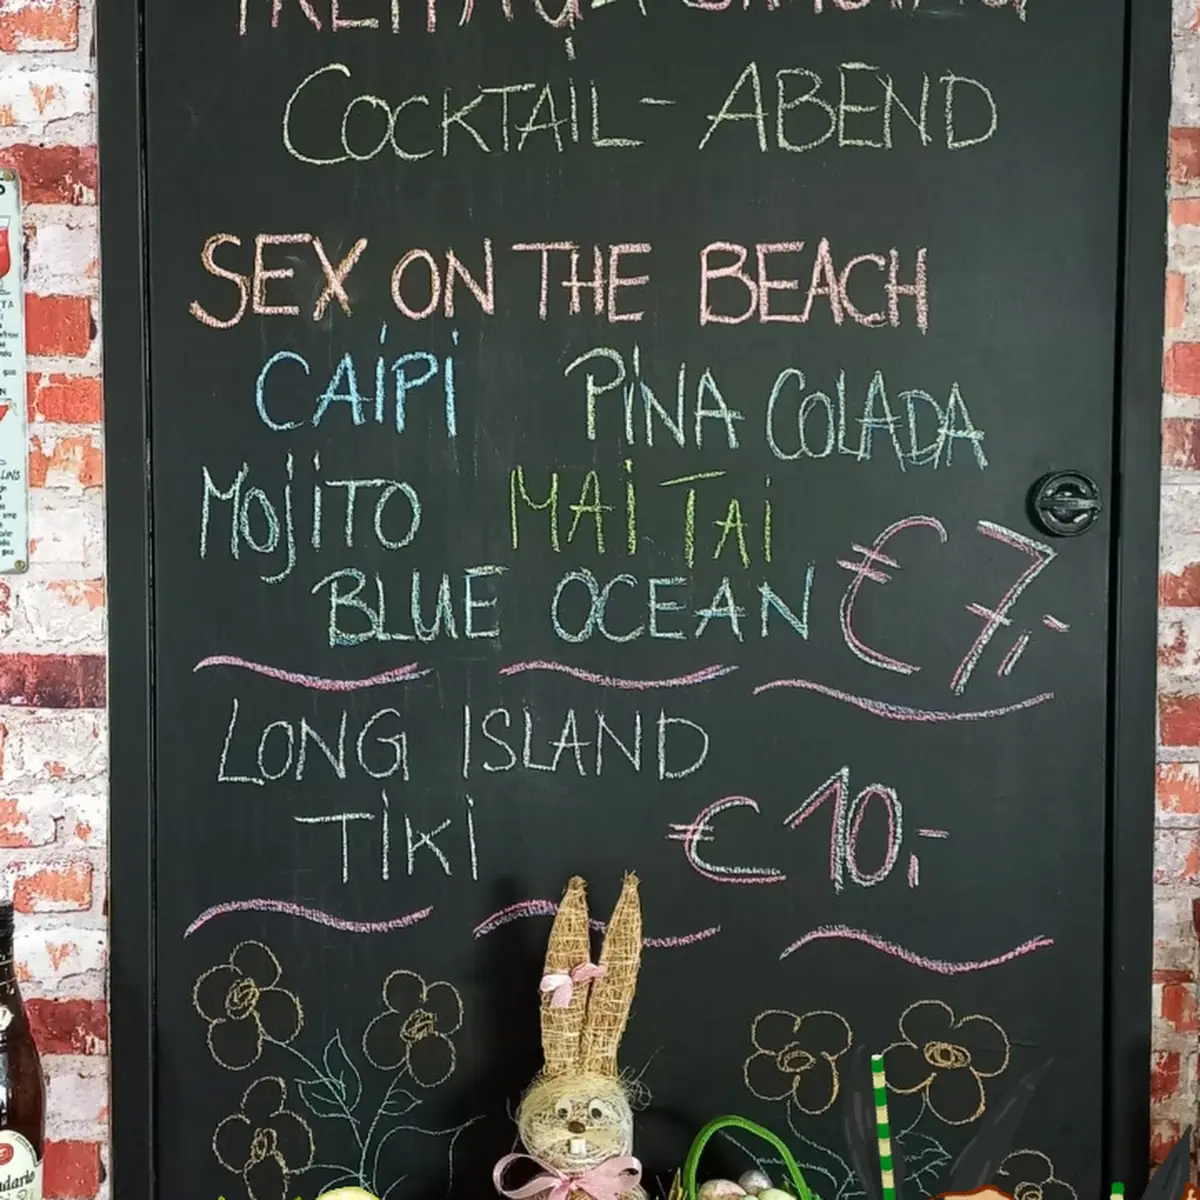 COCKTAIL - ABEND
SEX ON THE BEACH
CAIPI PINA COLADA
MOJITO MAI TAI
BLUE OCEAN €7,-
LONG ISLAND
TIKI €10,-